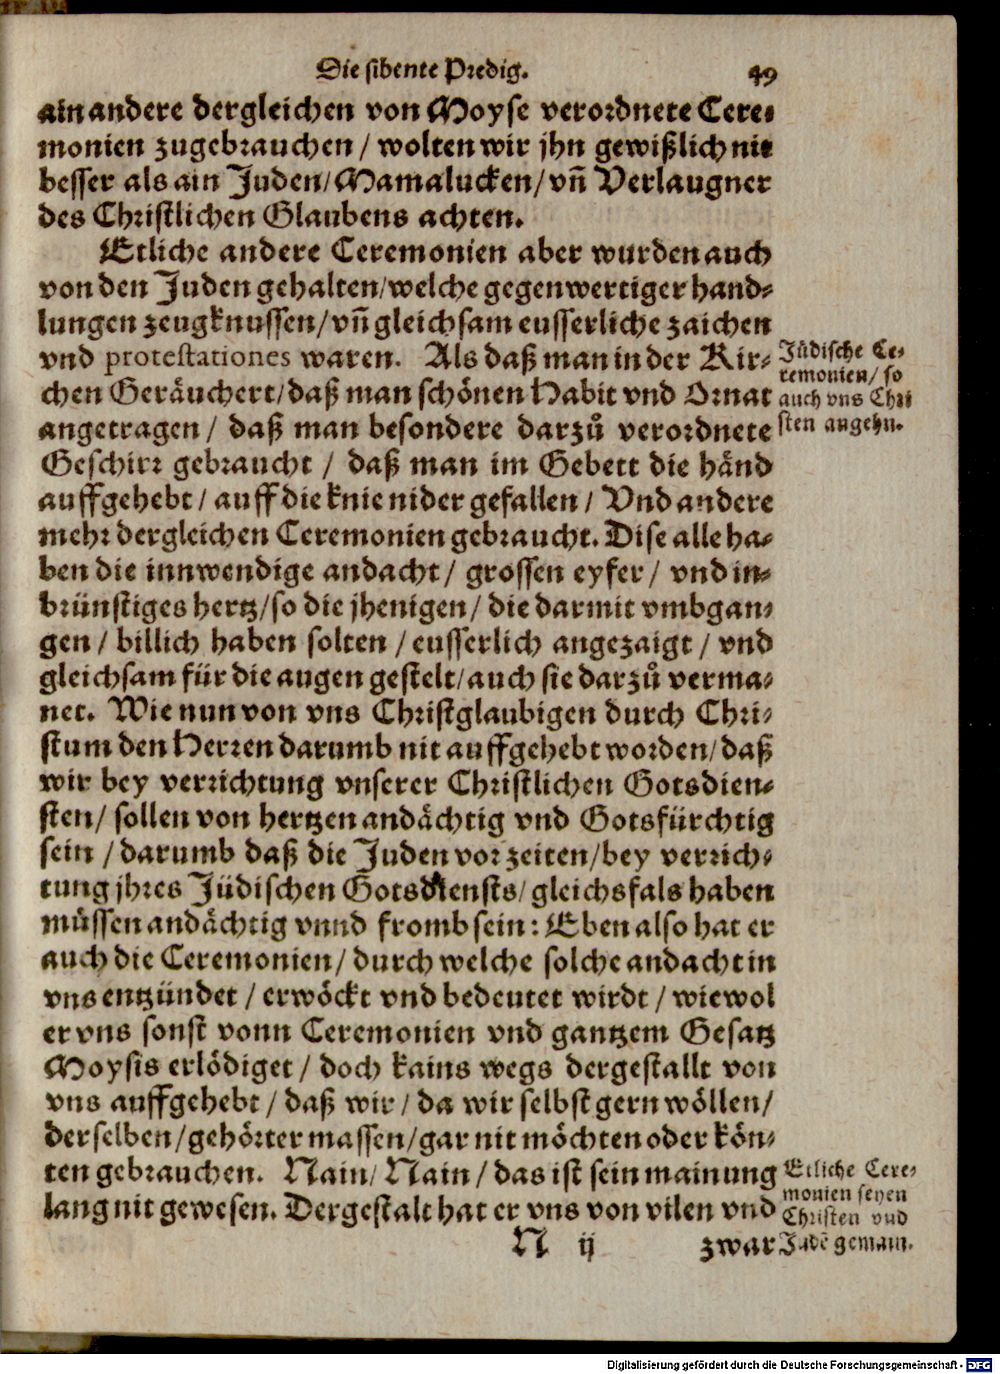 Die sibente Predig. 49
ain andere dergleichen von Moyse verordnete Cere⸗
monien zugebrauchen / wolten wir jhn gewißlich nit
besser als ain Juden/ Mamalucken/ vn̄ Verlaugner
des Christlichen Glaubens achten.
Etliche andere Ceremonien aber wurden auch
von den Juden gehalten/ welche gegenwertiger hand⸗
lungen zeugknussen/ vn̄ gleichsam eusserliche zaichen
vnd protestationes waren. Als daß man in der Kir⸗
chen Geräuchert/ daß man schönen Habit vnd Ornat
angetragen / daß man besondere darzů verordnete
Geschirr gebraucht / daß man im Gebett die händ
auffgehebt / auff die knie nider gefallen / Vnd andere
mehr dergleichen Ceremonien gebraucht. Dise alle ha⸗
ben die innwendige andacht / grossen eyfer / vnd in⸗
brünstiges hertz/ so die jhenigen / die darmit vmbgan⸗
gen / billich haben solten / eusserlich angezaigt / vnd
gleichsam für die augen gestelt/ auch sie darzů verma⸗
net. Wie nun von vns Christglaubigen durch Chri⸗
stum den Herren darumb nit auffgehebt worden/ daß
wir bey verrichtung vnserer Christlichen Gotsdien⸗
sten/ sollen von hertzen andächtig vnd Gotsfürchtig
sein / darumb daß die Juden vor zeiten/ bey verrich⸗
tung jhres Jüdischen Gotsdiensts/ gleichsfals haben
müssen andächtig vnnd fromb sein: Eben also hat er
auch die Ceremonien / durch welche solche andacht in
vns entzündet / erwöckt vnd bedeutet wirdt / wiewol
er vns sonst vonn Ceremonien vnd gantzem Gesatz
Moysis erlödiget / doch kains wegs dergestallt von
vns auffgehebt / daß wir / da wir selbst gern wöllen/
derselben/ gehörter massen/ gar nit möchten oder kön⸗
ten gebrauchen. Nain/ Nain / das ist sein mainung
lang nit gewesen. Dergestalt hat er vns von vilen vnd
N ij zwar
Jüdische Ce⸗
remonien/ so
auch vns Chri
sten angehn.
Etliche Cere⸗
monien seyen
Christen vnd
Judē gemain.
Digitalisierung gefördert durch die Deutsche Forschungsgemeinschaft - DFG